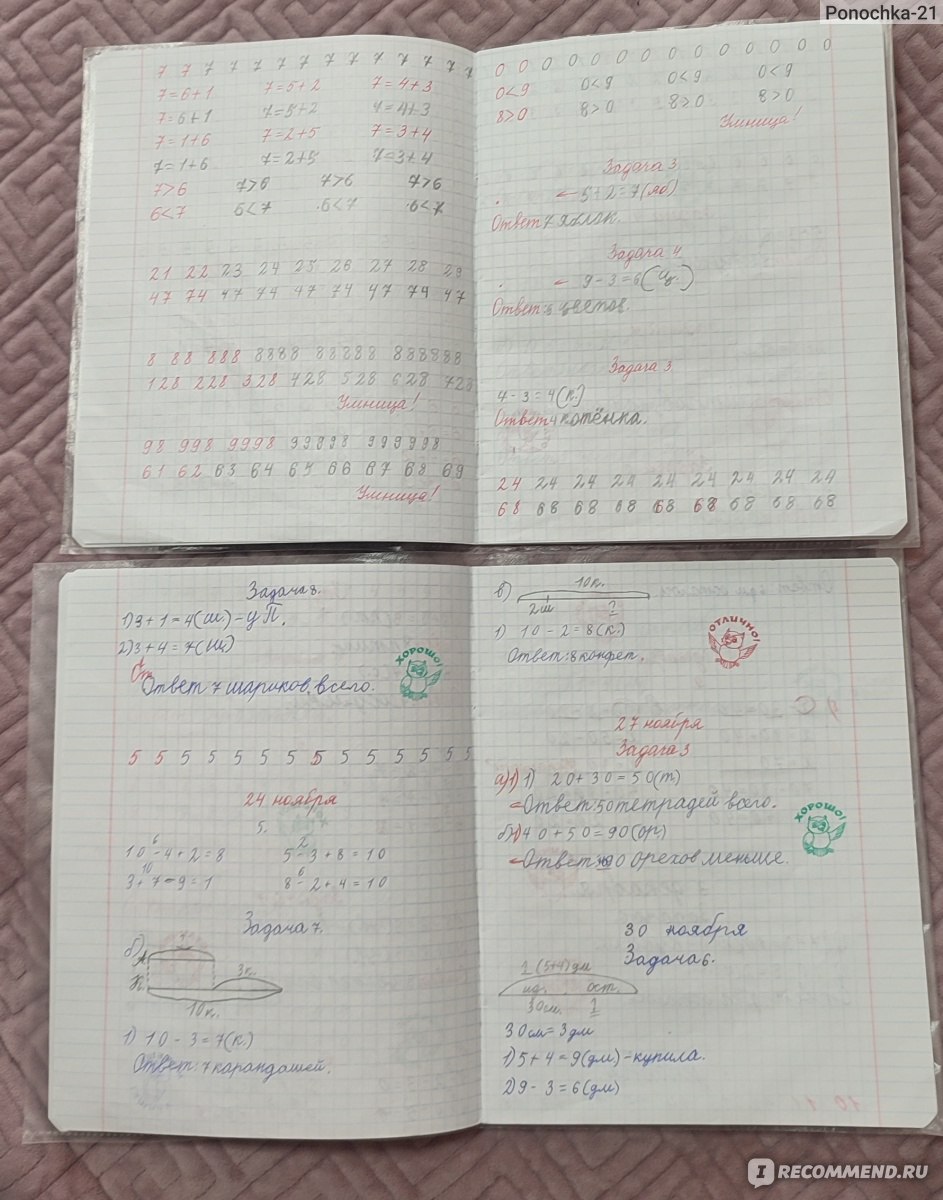 Ponochka-21
7 7 7 7 7 7 7 7 7 7 7 7 7 7
7=6+1 7=5+2 7=4+3
7=6+1 7=5+2 7=4+3
7=1+6 7=2+5 7=3+4
7=1+6 7=2+5 7=3+4
7>6 7>6 7>6 7>6
6<7 6<7 6<7 6<7
21 22 23 24 25 26 27 28 29
47 74 47 74 47 74 47 74 47
8 88 888 8888 88888 888888
128 228 328 428 528 628 728
Умница!
98 998 9998 99998 999998
61 62 63 64 65 66 67 68 69
Умница!
0 0 0 0 0 0 0 0 0 0 0 0 0 0 0
0<9 0<9 0<9 0<9
8>0 8>0 8>0 8>0
Умница!
Задача 3
5+2=7(яб)
Ответ 7 яблок.
Задача 4
9-3=6(цв.)
Ответ: 6 цветов.
Задача 3
7-3=4(к.)
Ответ 4 котёнка.
24 24 24 24 24 24 24 24 24
68 68 68 68 68 68 68 68 68
Задача 8.
1) 3+1=4(ш.)-у П.
2) 3+4=7(ш)
От
Ответ 7 шариков, всего.
ХОРОШО!
5 5 5 5 5 5 5 5 5 5 5 5 5
24 ноября
5.
6 2
10-4+2=8 5-3+8=10
10 6
3+7-9=1 8-2+4=10
Задача 7.
б)
К. 3к.
10к.
1) 10-3=7(к.)
Ответ: 7 карандашей.
в) 10к.
2ш ?
1) 10-2=8(к.)
Ответ: 8 конфет.
ОТЛИЧНО!
27 ноября
Задача 3
а) 1) 20+30=50(т)
Ответ 50 тетрадей всего.
б) 40+50=90(ор)
Ответ орехов меньше.
ХОРОШО!
30 ноября
Задача 6.
? (5+4)дм
ост.
30см. ?
30см=3дм
1) 5+4=9(дм)-купила.
2) 9-3=6(дм)
IRECOMMEND.RU